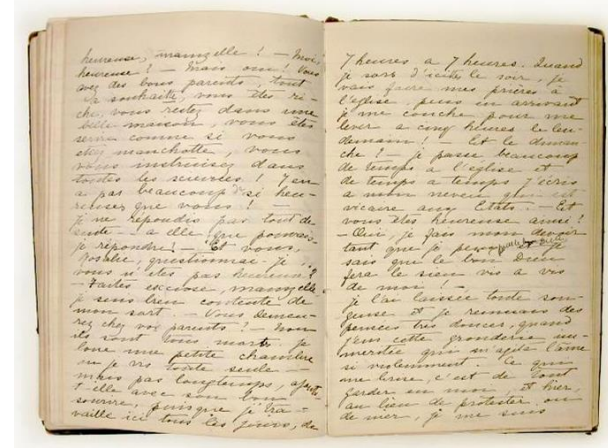 heureuse, mamzelle ! — Moi,
heureuse ? — Mais oui ! Vous
avez des bons parents, tout
à souhaite, vous êtes ri-
che, vous restez dans une
belle maison, vous êtes
servie comme si vous
étiez manchotte, vous
vous instruisez dans
toutes les sciences ! Y en
a pas beaucoup de si heu-
reuses que vous ! —
Je ne répondis pas tout de
suite — à elle que pouvais-
je répondre ! — Et vous,
Rosalie, questionnai-je
vous n'êtes pas heureuse ?
— Faites excuse, mamzelle,
je suis bien contente de
mon sort. — Vous demeu-
rez chez vos parents ? — Non
ils sont tous morts. Je
loue une petite chambre
ou je vis toute seule —
mais pas longtemps, ajouta
t-elle avec son bon
sourire, puisque je tra-
vaille ici tous les jours, de
7 heures a 7 heures. Quand
je sors d'ici le soir, je
vais faire mes prières à
l'église, puis en arrivant
je me couche pour me
lever a cinq heures le len-
demain ! — Et le diman-
che ? — Je passe beaucoup
de temps a l'église et
de temps a temps j'écris
a mon neveu qui est
vicaire aux Etats. — Et
vous êtes heureuse ainsi ?
— Oui, je fais mon devoir
tant que je peux et je
sais que le bon Dieu
fera le sien vis a vis
de moi ! —
Je l'ai laissée toute son-
geuse et je remuais des
pensées très douces, quand
j'eus cette gronderie im-
méritée qui m'agita l'âme
si violemment. Ce qui
me brise, c'est de tout
garder en moi, et hier,
au lieu de protester ou
de me suis